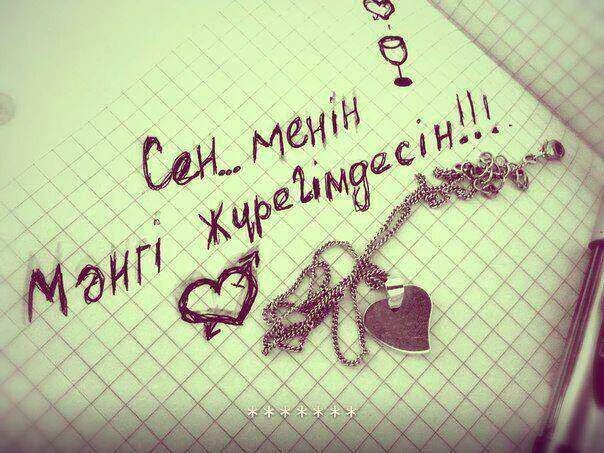 Сен... менін
Мәнгі жүрегімдесін!!!
*******